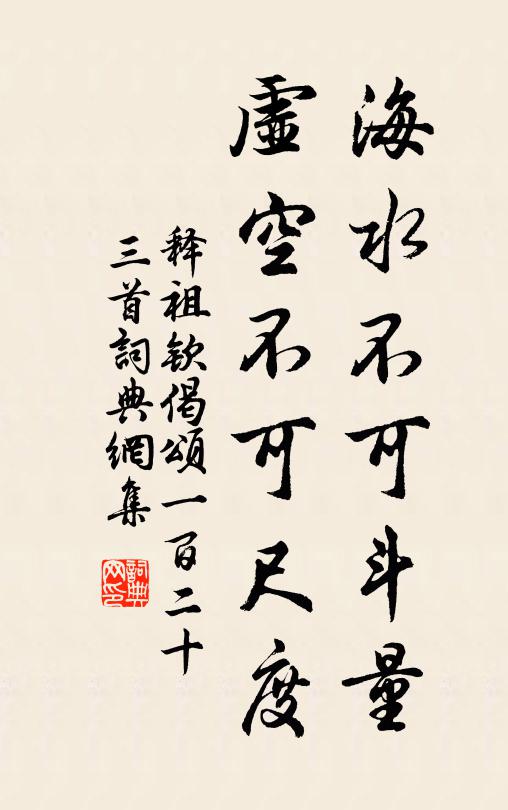 海水不可斗量
虛空不可尺度
释祖欽偈頌一百二十
三首詞典網集
詞典网印